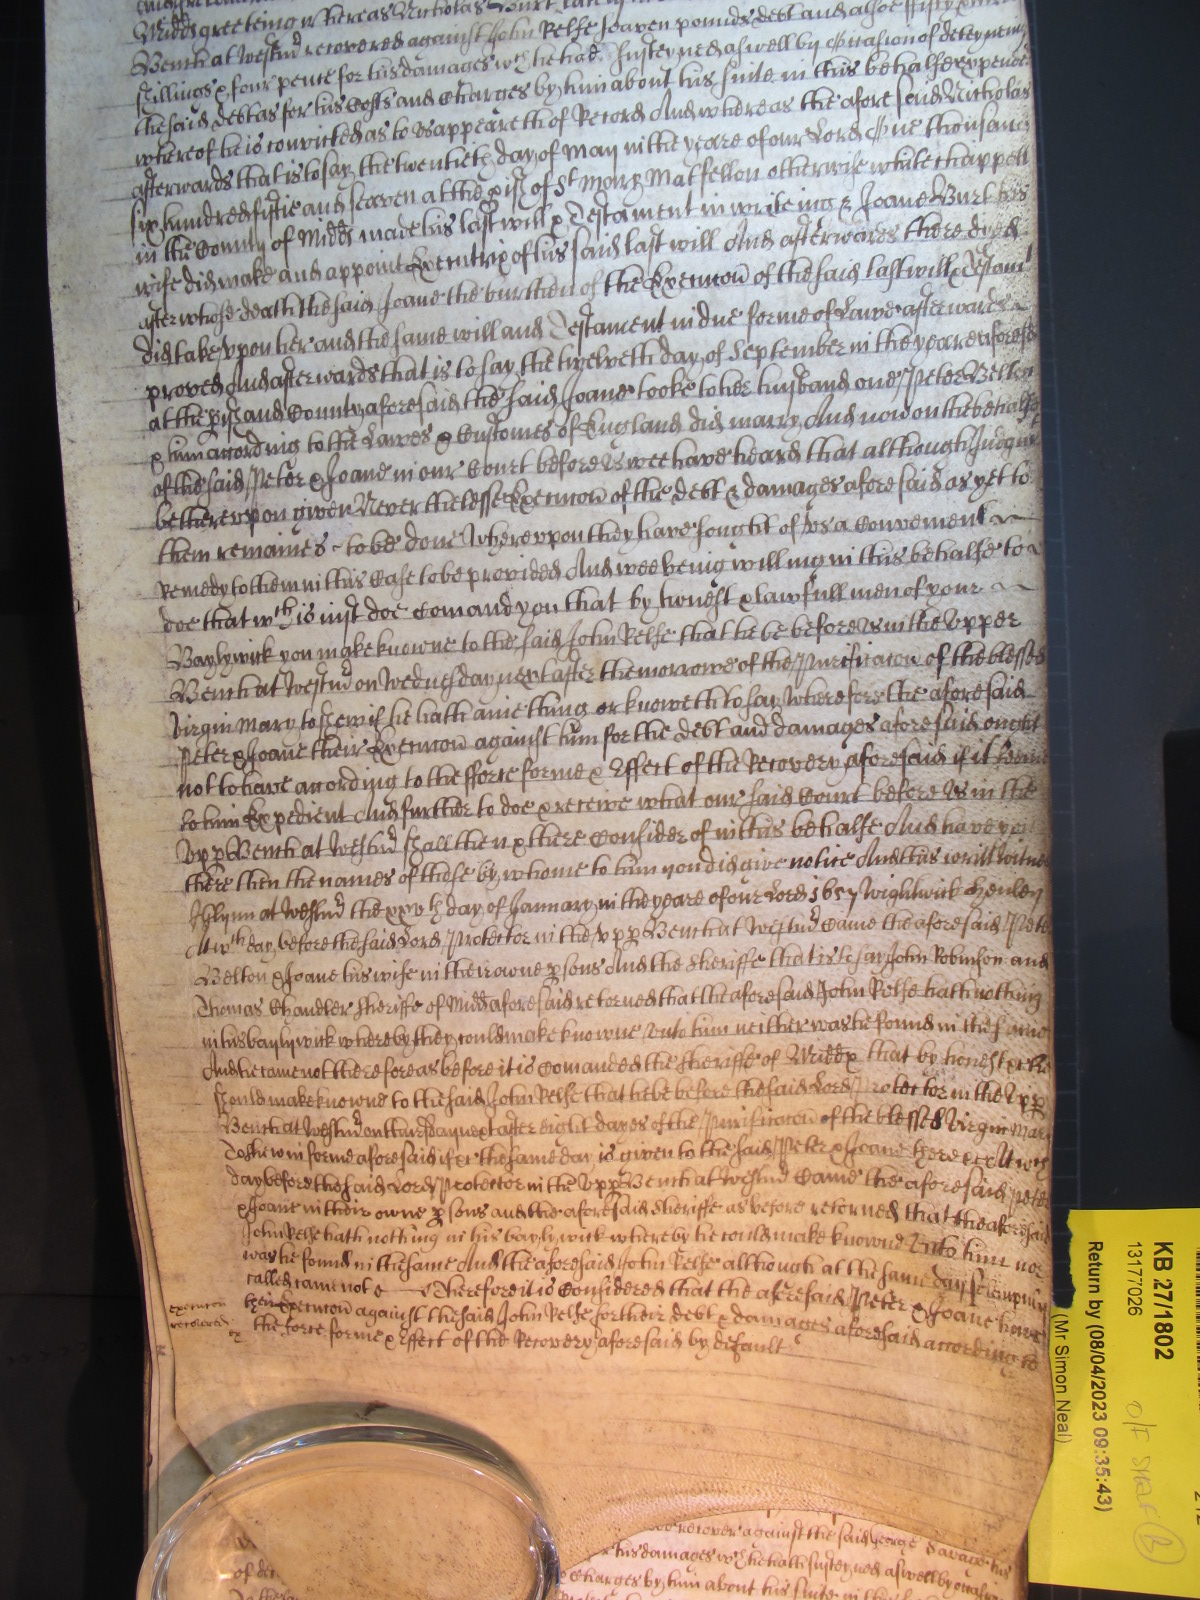 Midd greeting Whereas Nicholas
Bench at Westmr recovered against John Relfe seaven pounds debt and alsoe fifty
shillings & four pence for his damages wch he had susteyned aswell by occasion of deteyneing
the said debt as for his Costs and Charges by him about his suite in this behalfe expended
whereof he is convicted as to us appeareth of Record And whereas the aforesaid Nicholas
afterwards that is to say the twentieth day of May in the yeare of our Lord One thousand
six hundred fiftie and seaven at the pish of St Mary Matfellon otherwise Whitechappell
in the County of Midd made his last will & Testament in writeing & Joane Burt his
wife did make and appoint Executrix of his said last will And afterwards there dyed
after whose death the said Joane the burthen of the Execucon of the said last will & Testamt
did take upon her and the same will and Testament in due forme of Lawe afterwards
proved And afterwards that is to say the twelveth day of September in the yeare aforesd
at the pish and County aforesaid the said Joane tooke to her husband one Peter Belton
& him according to the Lawes & Customes of England did marry And now on the behalfe
of the said Peter & Joane in our Court before us wee have heard that although Judgmt
be thereupon given Neverthelesse Execucon of the debt & damages aforesaid as yet to
them remaines to be done Whereupon they have sought of us a Convenient
Remedy to them in this Case to be provided And wee being willing in this behalfe to
doe that wch is just doe Comand you that by honest & lawfull men of your
Baylywick you make knowne to the said John Relfe that he be before us in the Upper
Bench at Westmr on Wednesday next after the morrowe of the Purificacon of the blessed
Virgin Mary to shew if he hath anie thing or knoweth to say wherefore the aforesaid
Peter & Joane their Execucon against him for the debt and damages aforesaid ought
not to have according to the force forme & Effect of the Recovery aforesaid if it seeme
to him Expedient And further to doe & receive what our said Court before us in the
Upp Bench at Westmr shall then & there Consider of in this behalfe And have you
there then the names of those by whome to him you did give notice And this writt Witnes
J Glynn at Westmr the xxvth day of January in the yeare of our Lord 1657 Wightwick Henley
Att wch day before the said Lord Protector in the Upp Bench at Westmr Came the aforesaid Peter
Belton & Joane his wife in their owne psons And the sheriffe that is to say John Robinson and
Thomas Chandler sheriffe of Midd aforesaid retorned that the aforesaid John Relfe hath nothing
in his baylywick whereby they could make knowne unto him neither was he found in the same
And he came not therefore as before it is Comanded the sheriffe of Midd that by honest &c he
should make knowne to the said John Relfe that he be before the said Lord Protector in the Upp
Bench at Westmr on Thursday next after eight dayes of the Purificacon of the blessed Virgin Mary
To shew in forme aforesaid if &c the same day is given to the said Peter & Joane here &c Att wch
day before the said Lord Protector in the Upp Bench at Westmr Came the aforesaid Peter
& Joane in their owne psons and the aforesaid sheriffe as before retorned that the aforesaid
John Relfe hath nothing in his baylywick whereby he could make knowne unto him nor
was he found in the same And the aforesaid John Relfe although at the same day solempnly
called came not Therefore it is Considered that the aforesaid Peter & Joane have
their Execucon against the said John Relfe for their debt & damages aforesaid according to
the force forme & Effect of the Recovery aforesaid by default
Execucon
recovered
recover against the said George Savage his
his damages wch he hath susteyned aswell by occasion
Charges by him about his suite in this
of de
KB 27/1802
13177026
Return by (08/04/2023 09:35:43)
(Mr Simon Neal)